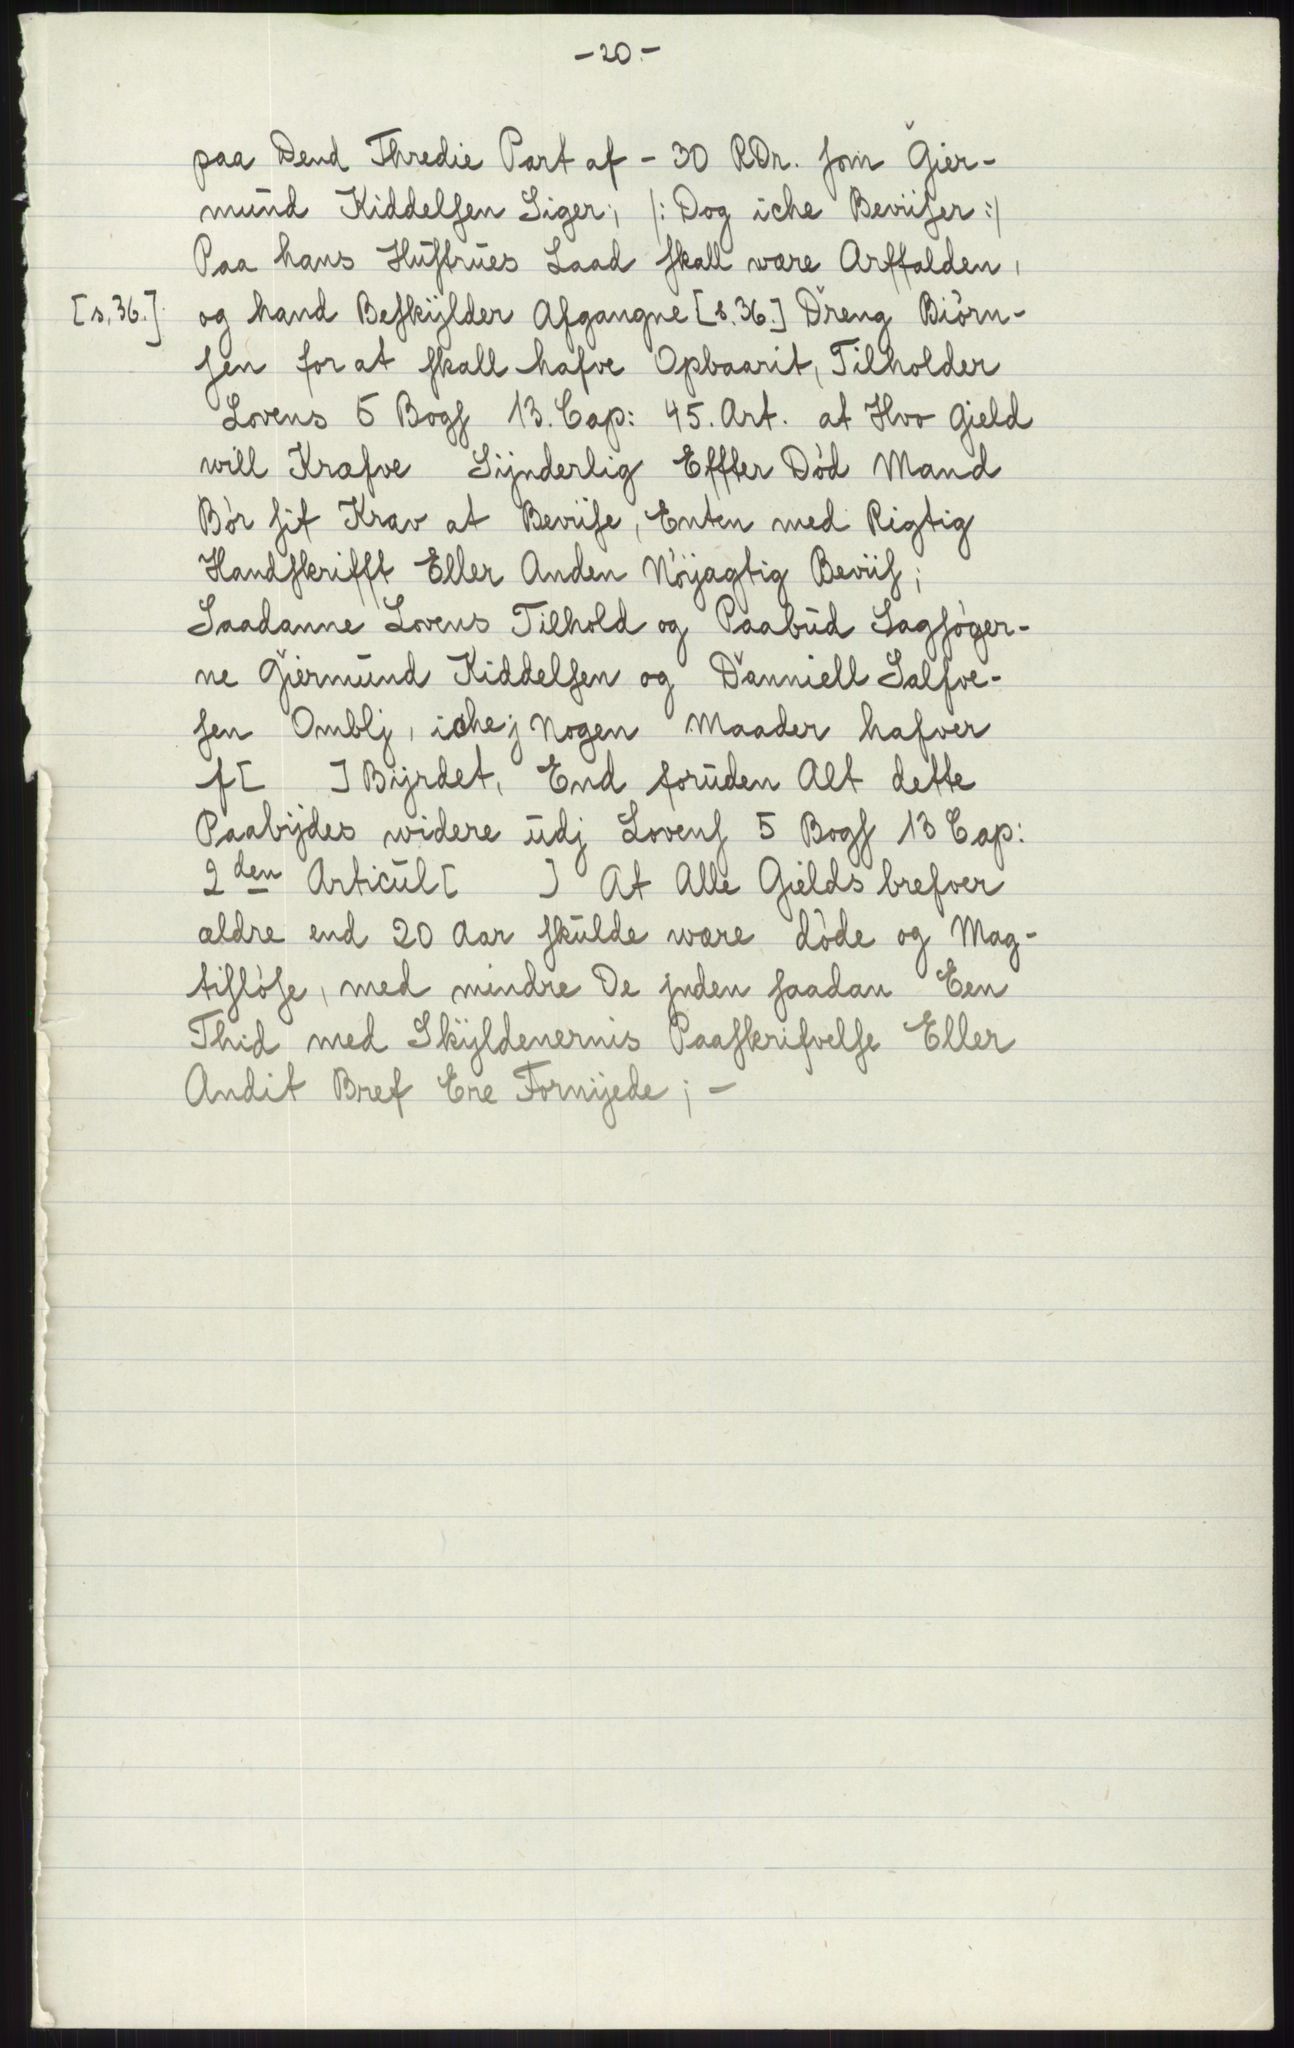 -20-
paa Dend Thredie Part af - 30 RDr. som Gier-
mund Kiddelsen Siger, /: Dog iche Beviiser :/
Paa hans Hustrues Laad skall være Arffalden,
[s. 36.] og hand Beskÿlder Afgangne [s. 36.] Dreng Biörn-
sen for at skall hafve Opbaarit, Tilholder
Lovens 5 Bogs 13. Cap: 45. Art. at Hvo Gield
will Kræfve Sÿnderlig Effter Död Mand
Bör sit Krav at Beviise, Enten med Rigtig
Handskrifft Eller Anden Nöÿagtig Beviis;
Saadanne Lovens Tilhold og Paabud Sagsöger-
ne Giermund Kiddelsen og Danniell Salfve-
sen Omblj, iche j Nogen Maader hafver
f[ ] Bÿrdet, End foruden Alt dette
Paabÿdes widere udj Lovens 5 Bogs 13 Cap:
2den Articul [ ] At Alle Gields brefver
ældre end 20 Aar skulde være döde og Mag-
tislöse, med mindre De jnden saadan Een
Thid med Skÿldenernis Paaskrifvelse Eller
Andit Bref Ere Fornÿede; -